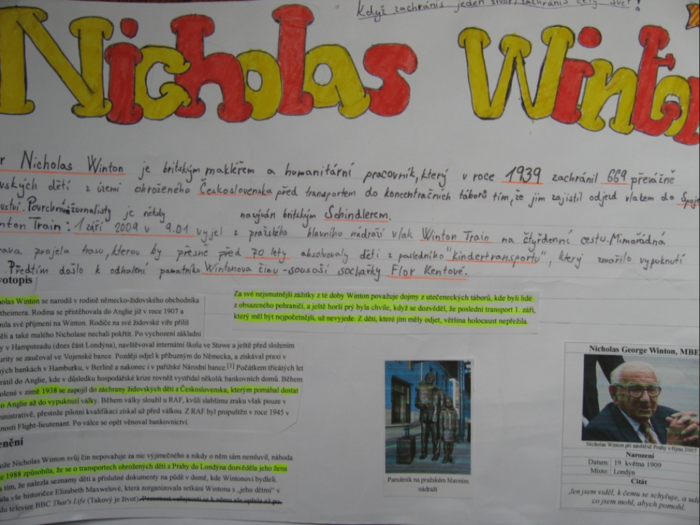 Když zachráníš jeden život, zachráníš celý svět!
Nicholas Winton
Nicholas Winton je britským makléřem a humanitární pracovník, který v roce 1939 zachránil 669 převážně
dětí z území ohroženého Československa před transportem do koncentračních táborů tím, že jim zajistil odjezd vlakem do
žurnalisty je někdy nazýván britským Schindlerem.
Train: 1 září 2009 v 9.01 vyjel z pražského hlavního nádraží vlak Winton Train na čtyřdenní cestu. Mimořádná
projela trasu, kterou by přesně před 70 lety absolvovaly děti z posledního "kindertransportu", který zmařilo vypuknutí
Předtím došlo k odhalení památníku Wintonova činu - sousoší sochařky Flor Kentové.
votopis
olas Winton se narodil v rodině německo-židovského obchodníka
Rodina se přistěhovala do Anglie již v roce 1907 a
své příjmení na Winton. Rodiče na své židovské víře příliš
a také malého Nicholase nechali pokřtít. Po vychození základní
v Hampsteadu (dnes část Londýna), navštěvoval internátní školu ve Stowe a ještě před složením
se zaučoval ve Vojenské bance. Později odjel k příbuzným do Německa, a získával praxi v
bankách v Hamburku, v Berlíně a nakonec i v pařížské Národní bance.[1] Počátkem třicátých let
do Anglie, kde v důsledku hospodářské krize rovněž vystřídal několik bankovních domů. Během
v zimě 1938 se zapojil do záchrany židovských dětí z Československa, kterým pomáhal dostat
Anglie až do vypuknutí války. Během války sloužil u RAF, kvůli slabšímu zraku však pouze v
administrativě, přestože pilotní kvalifikaci získal už před válkou. Z RAF byl propuštěn v roce 1945 v
hodnosti Flight-lieutenant. Po válce se opět věnoval bankovnictví.
Za své nejsmutnější zážitky z té doby Winton považuje dojmy z utečeneckých táborů, kde byli lidé
z obsazeného pohraničí, a ještě horší prý byla chvíle, když se dozvěděl, že poslední transport 1. září,
který měl být nejpočetnější, už nevyjede. Z dětí, které jím měly odjet, většina holocaust nepřežila.
enění
Nicholas Winton svůj čin nepovažuje za nic výjimečného a nikdy o něm sám nemluvil, náhoda
1988 způsobila, že se o transportech ohrožených dětí z Prahy do Londýna dozvěděla jeho žena
tím, že nalezla seznamy dětí a příslušné dokumenty na půdě v domě, kde Wintonovi bydleli.
vše historičce Elizabeth Maxwelové, která zorganizovala setkání Wintona s „jeho dětmi“ v
televize BBC That's Life (Takový je život).
Památník na pražském hlavním
nádraží
Nicholas George Winton, MBE
Nicholas Winton při návštěvě Prahy v říjnu 2007
Narození
Datum: 19. května 1909
Místo: Londýn
Citát
Jen jsem viděl, k čemu se schyluje, a udělal
co jsem mohl, abych pomohl.